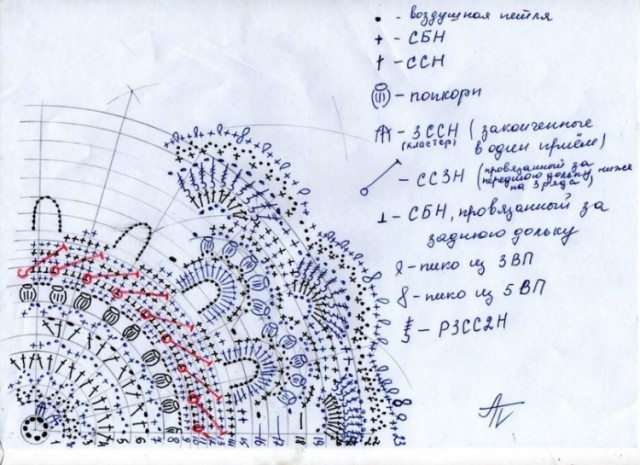 - воздушная петля
- СБН
- ССН
- попкорн
- 3 ССН (законченные
(кластер) в один приём)
- СС3Н (провязанный за
переднюю дольку, ниже
на 3 ряда)
- СБН, провязанный за
заднюю дольку
- пико из 3 ВП
- пико из 5 ВП
- Р3СС2Н